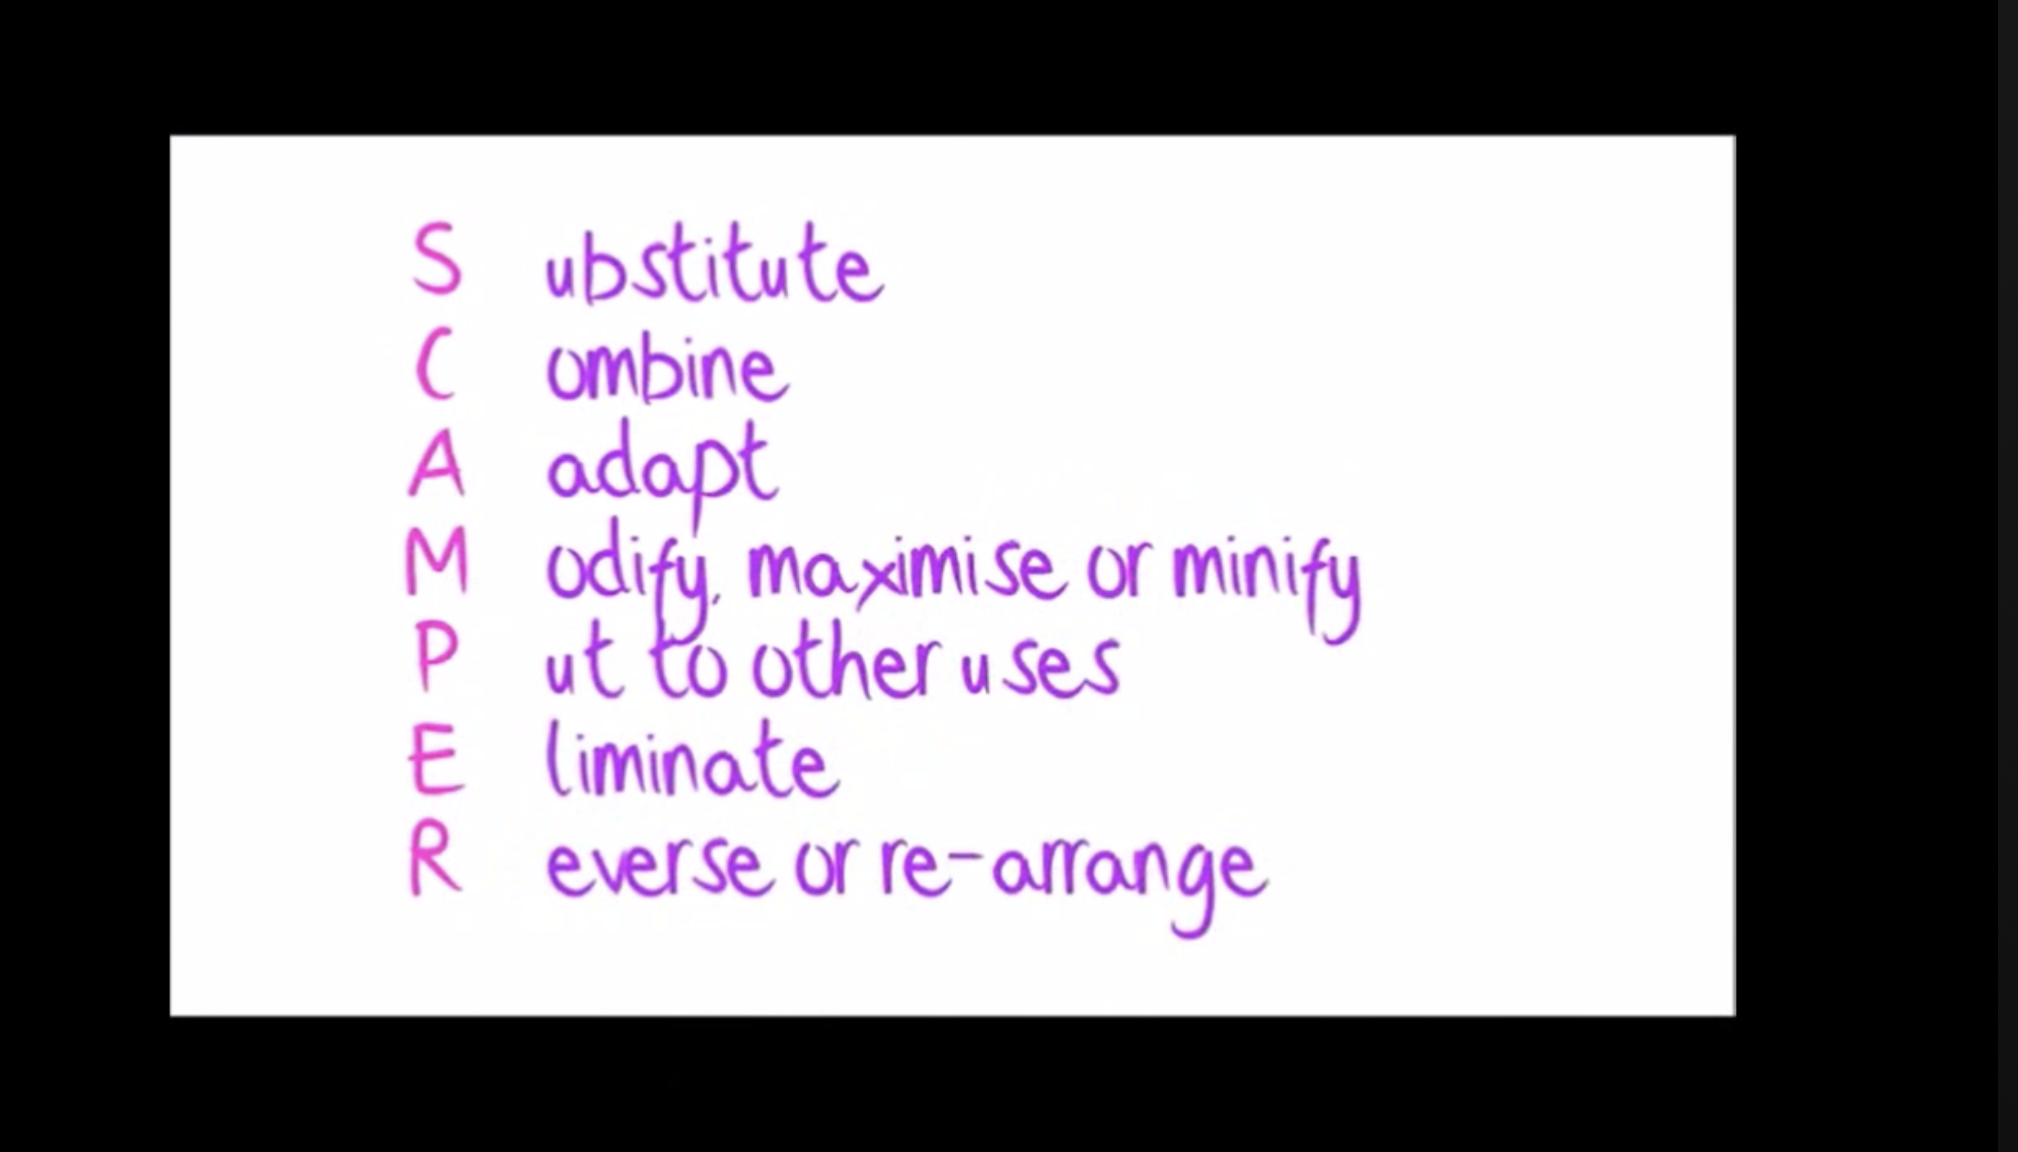 S ubstitute
C ombine
A adapt
M odify, maximise or minify
P ut to other uses
E liminate
R everse or re-arrange